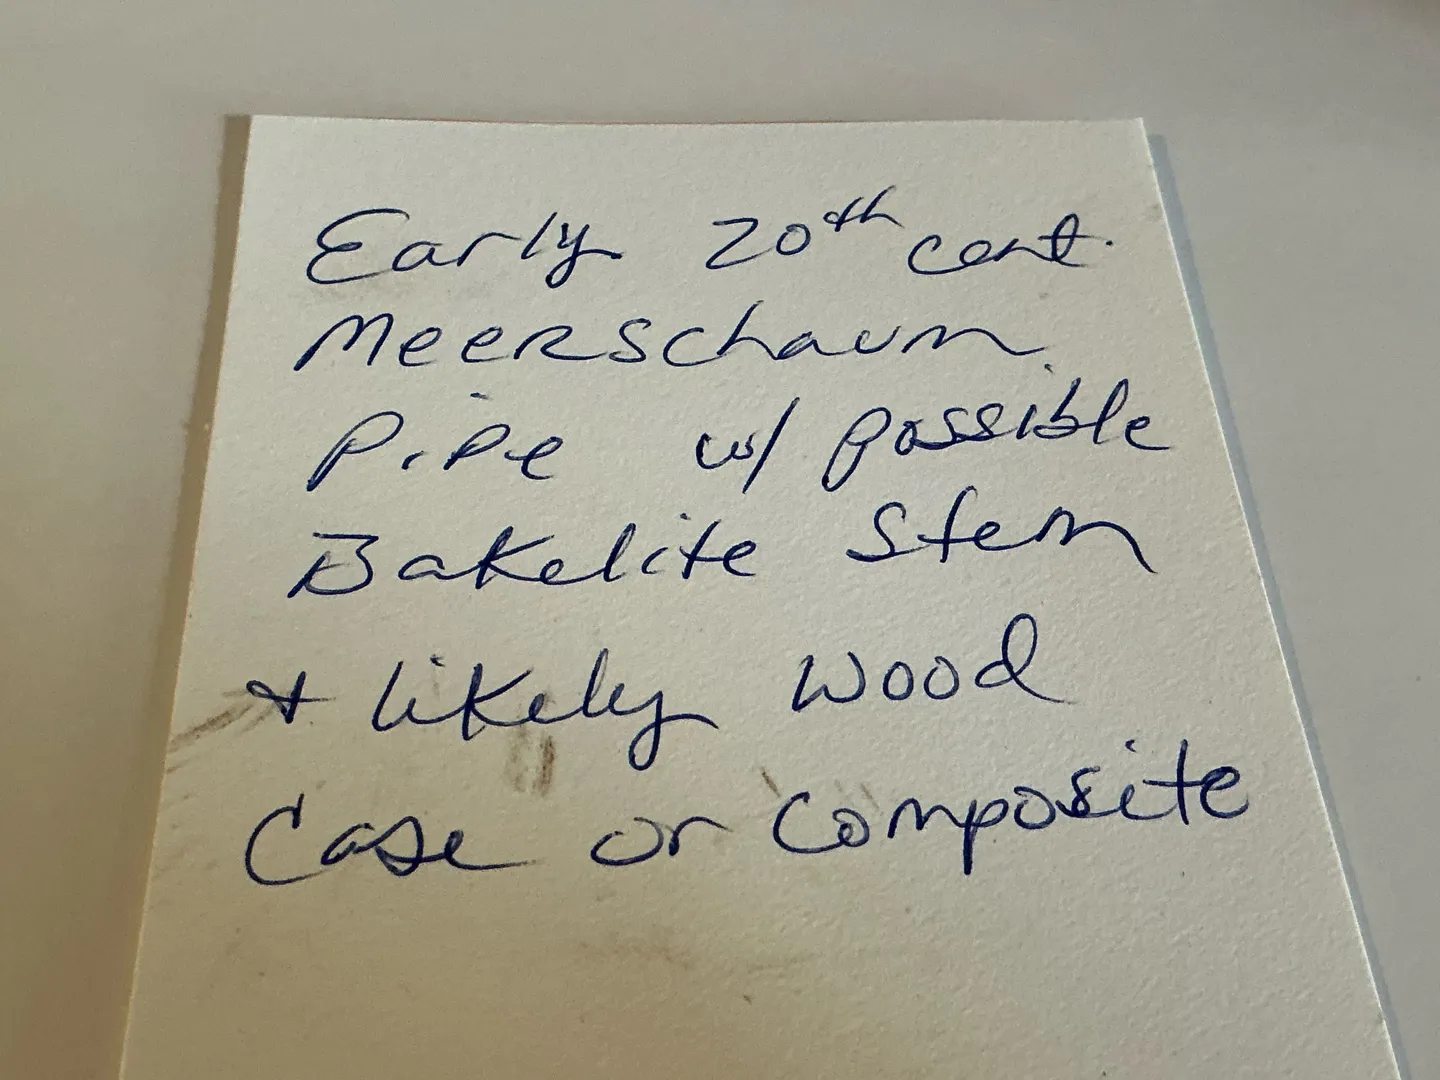 Early 20th cent.
Meerschaum
Pipe w/ possible
Bakelite Stem
& likely wood
Case or Composite